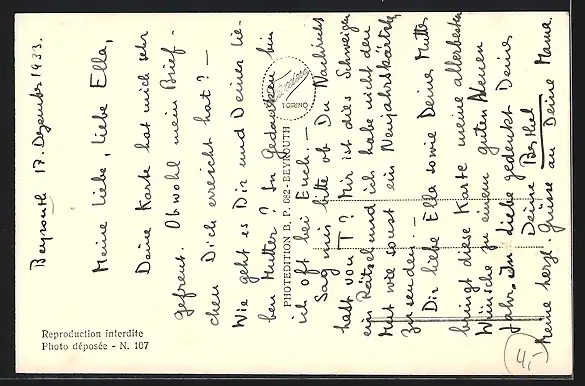 Beyrouth 17. Dezember 1933.
Meine liebe, liebe Ella,
Deine Karte hat mich sehr
gefreut. Obwohl mein Brief-
chen Dich erreicht hat? –
Wie geht es Dir und Deiner lie-
ben Mutter? In Gedanken bin
ich oft bei Euch. –
Sag mir bitte ob Du Nachricht
hast von T? Mir ist dies Schweigen
ein Rätsel und ich habe nicht den
Mut wie sonst ein Neujahrskärtchen
zu senden. –
Dir liebe Ella sowie Deine Mutter
bringt diese Karte meine allerbesten
Wünsche zu einem guten Neuen
Jahr. In Liebe gedenkt Deine
Deine Berthel
Meine herzl. Grüsse an Deine Mama
PHOTEDITION B. P. 682 - BEYROUTH
TORINO
Reproduction interdite
Photo déposée - N. 107
4,-